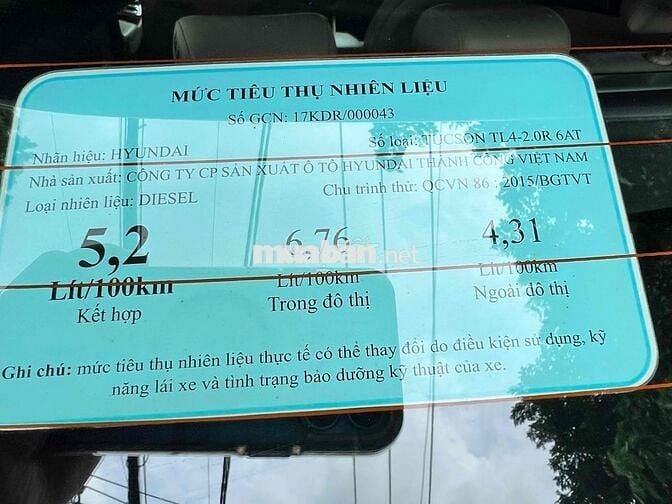 MỨC TIÊU THỤ NHIÊN LIỆU
Số GCN: 17KDR/000043
Nhãn hiệu: HYUNDAI
Số loại: TUCSON TL4-2.0R 6AT
Nhà sản xuất: CÔNG TY CP SẢN XUẤT Ô TÔ HYUNDAI THÀNH CÔNG VIỆT NAM
Loại nhiên liệu: DIESEL
Chu trình thử: QCVN 86 : 2015/BGTVT
5,2
6,76
4,31
muaban.net
Lít/100km
Lít/100km
Lít/100km
Kết hợp
Trong đô thị
Ngoài đô thị
Ghi chú: mức tiêu thụ nhiên liệu thực tế có thể thay đổi do điều kiện sử dụng, kỹ
năng lái xe và tình trạng bảo dưỡng kỹ thuật của xe.